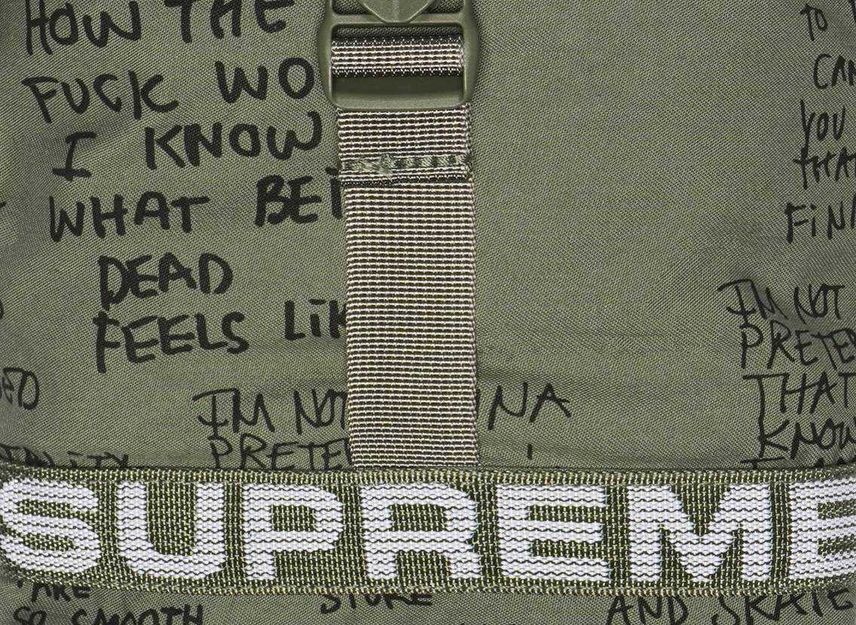 HOW THE
FUCK WO
I KNOW
WHAT BEI
DEAD
FEELS LIK
TO
CAN
YOU
THA
FIN
I'M NOT
PRETE
THAT
KNOW
I'M NOT NNA
PRETE
SUPREME
ARE
SO SMOOTH
STORE
AND SKATE